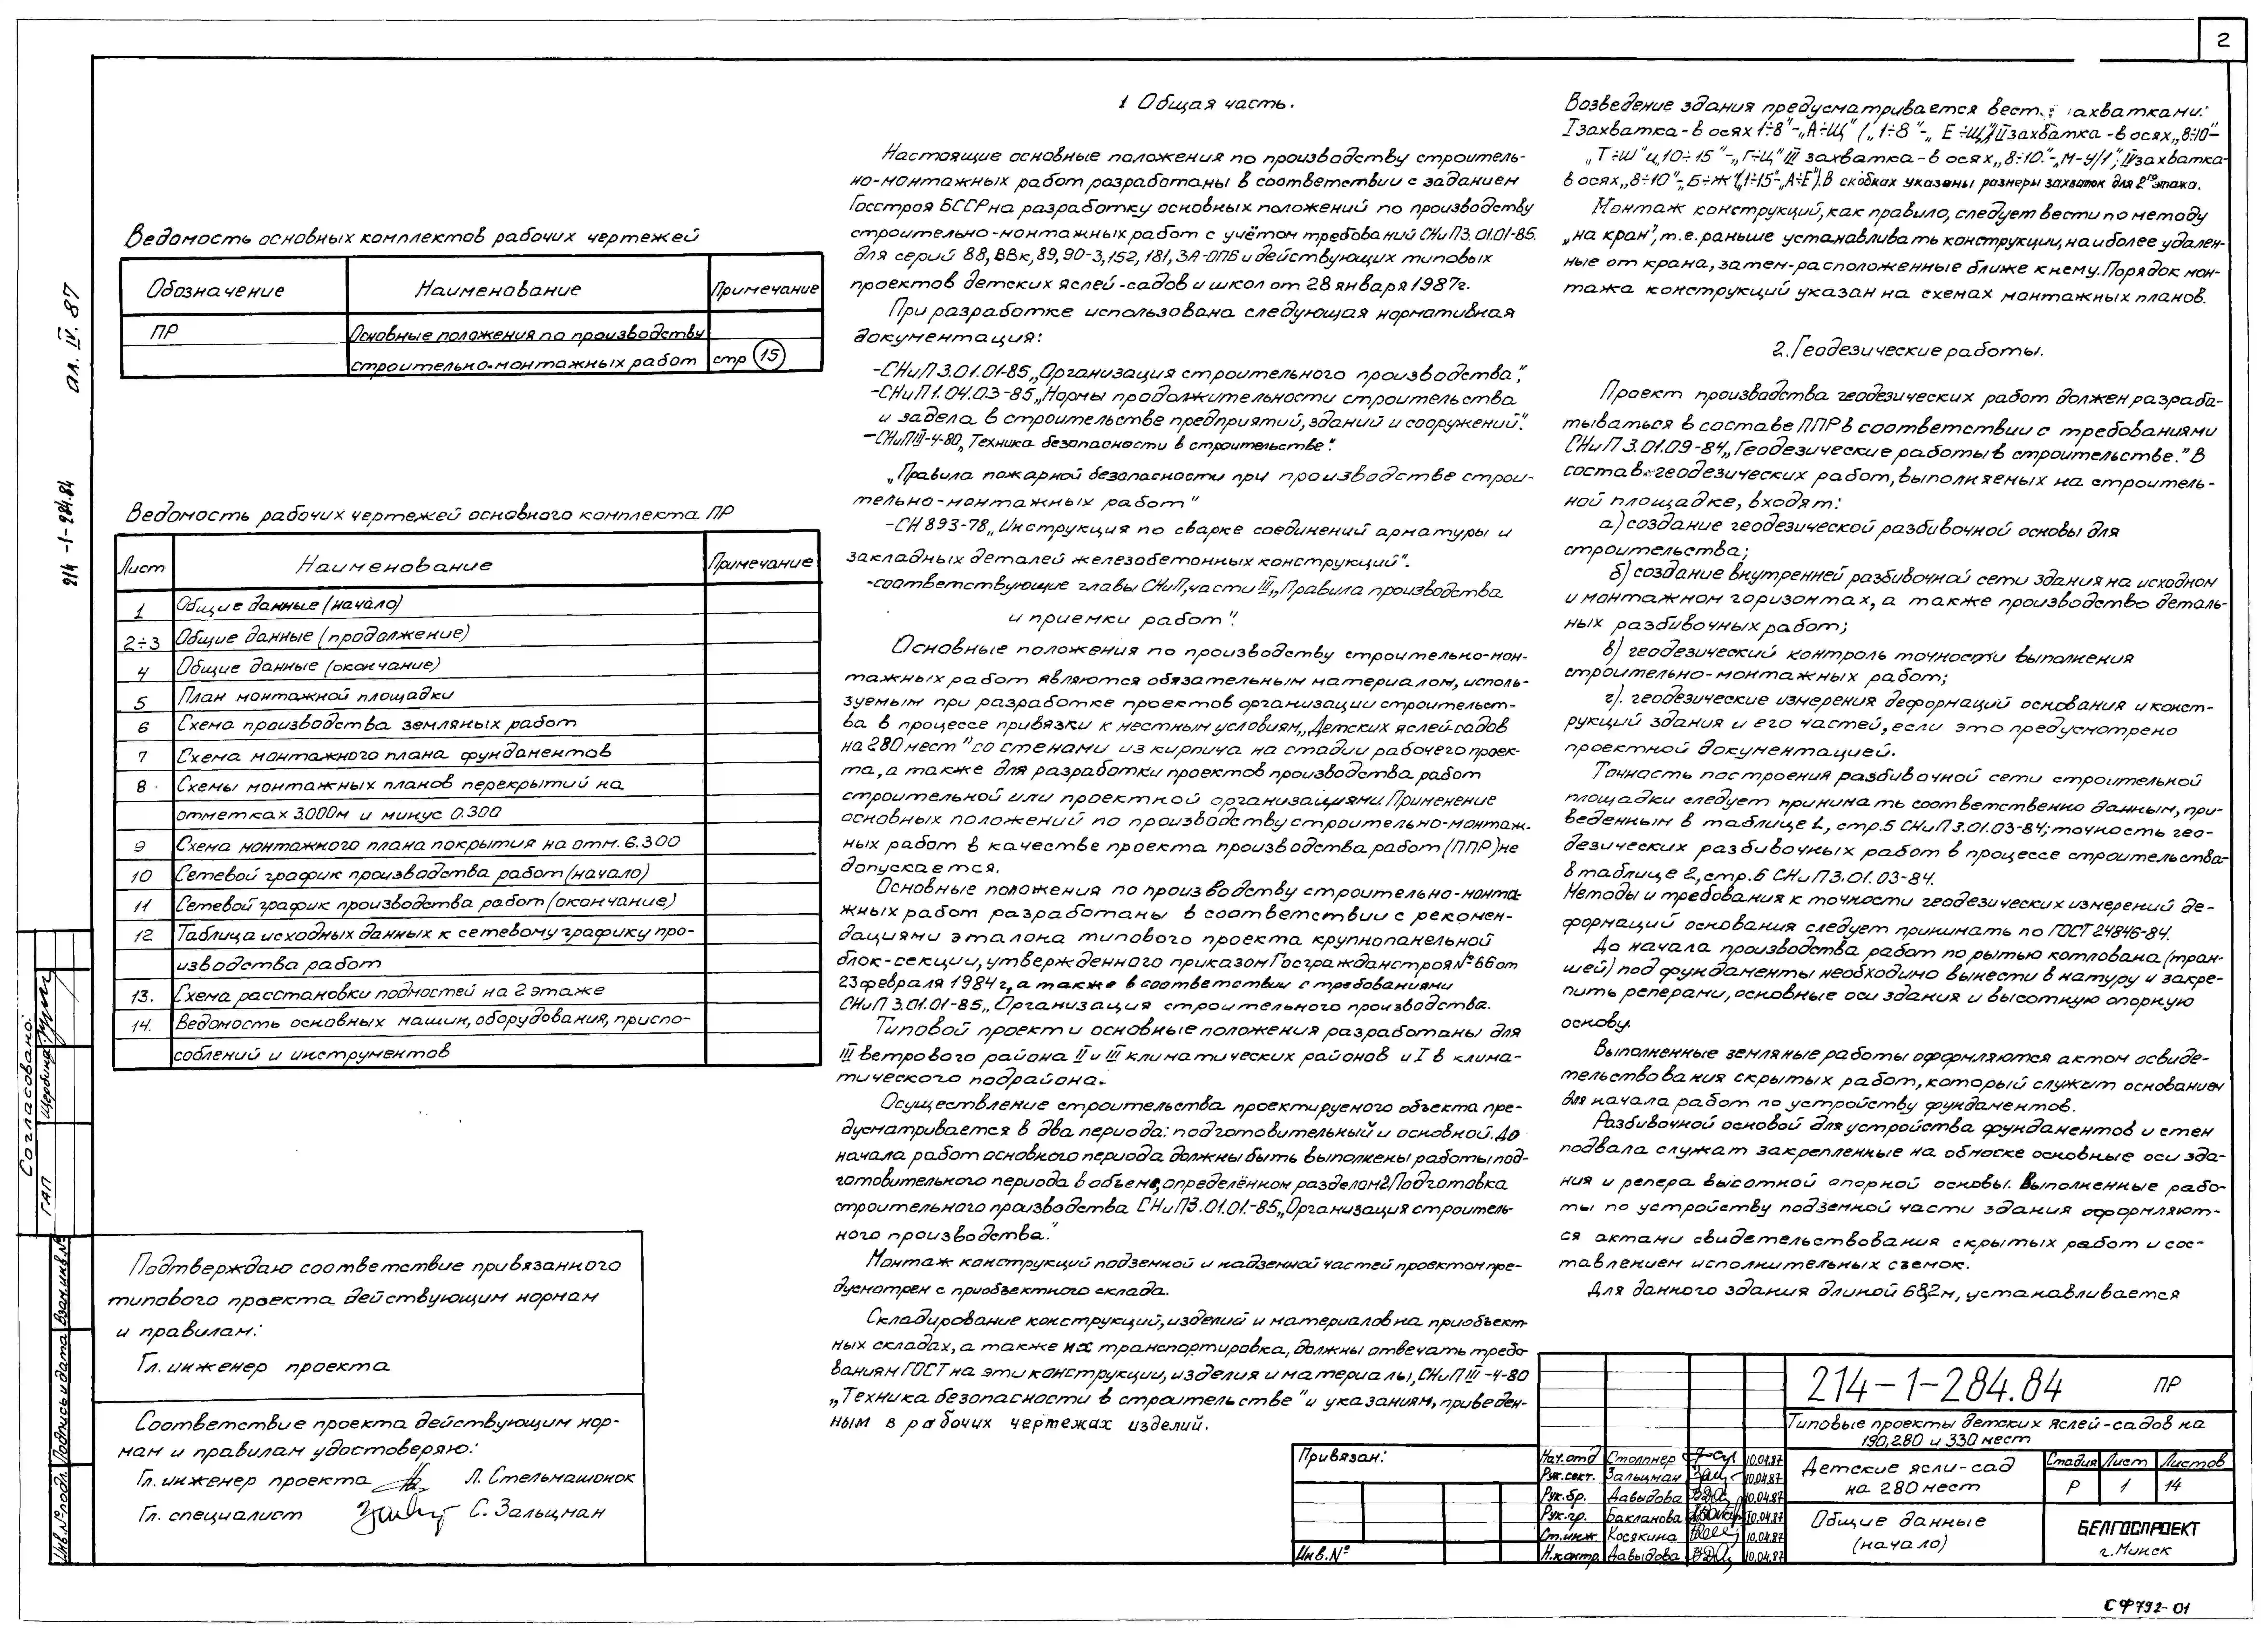 2
ал. IV. 87
214-1-284.84
Ведомость основных комплектов рабочих чертежей
Обозначение Наименование Примечание
ПР Основные положения по производству
строительно-монтажных работ стр 15
Ведомость рабочих чертежей основного комплекта ПР
Лист Наименование Примечание
1 Общие данные (начало)
2÷3 Общие данные (продолжение)
4 Общие данные (окончание)
5 План монтажной площадки
6 Схема производства земляных работ
7 Схема монтажного плана фундаментов
8 Схемы монтажных планов перекрытий на
отметках 3.000м и минус 0.300
9 Схема монтажного плана покрытия на отм. 6.300
10 Сетевой график производства работ (начало)
11 Сетевой график производства работ (окончание)
12 Таблица исходных данных к сетевому графику про-
изводства работ
13. Схема расстановки подмостей на 2 этаже
14. Ведомость основных машин, оборудования, приспо-
соблений и инструментов
Согласовано:
ГАП Щербина
Инв.№ подл. Подпись и дата Взам.инв.№
Подтверждаю соответствие привязанного
типового проекта действующим нормам
и правилам:
Гл. инженер проекта
Соответствие проекта действующим нор-
мам и правилам удостоверяю:
Гл. инженер проекта Л. Стельмашонок
Гл. специалист С. Зальцман
1 Общая часть.
Настоящие основные положения по производству строитель-
но-монтажных работ разработаны в соответствии с заданием
Госстроя БССР на разработку основных положений по производству
строительно-монтажных работ с учётом требований СНиП 3.01.01-85.
для серий 88, ВВк, 89, 90-3, 152, 181, 3А-ОПБ и действующих типовых
проектов детских яслей-садов и школ от 28 января 1987г.
При разработке использована следующая нормативная
документация:
-СНиП 3.01.01-85 „Организация строительного производства",
-СНиП 1.04.03-85 „Нормы продолжительности строительства
и задела в строительстве предприятий, зданий и сооружений".
-СНиП III-4-80 „Техника безопасности в строительстве".
„Правила пожарной безопасности при производстве строи-
тельно-монтажных работ"
-СН 893-78 „Инструкция по сварке соединений арматуры и
закладных деталей железобетонных конструкций".
-соответствующие главы СНиП, части III „Правила производства
и приемки работ".
Основные положения по производству строительно-мон-
тажных работ являются обязательным материалом, исполь-
зуемым при разработке проектов организации строительст-
ва в процессе привязки к местным условиям „Детских яслей-садов
на 280 мест" со стенами из кирпича на стадии рабочего проек-
та, а также для разработки проектов производства работ
строительной или проектной организациями. Применение
основных положений по производству строительно-монтаж-
ных работ в качестве проекта производства работ (ППР) не
допускается.
Основные положения по производству строительно-монта-
жных работ разработаны в соответствии с рекомен-
дациями эталона типового проекта крупнопанельной
блок-секции, утвержденного приказом Госгражданстроя №66 от
23 февраля 1984г, а также в соответствии с требованиями
СНиП 3.01.01-85 „Организация строительного производства.
Типовой проект и основные положения разработаны для
III ветрового района II и III климатических районов и I в клима-
тического подрайона.
Осуществление строительства проектируемого объекта пре-
дусматривается в два периода: подготовительный и основной. До
начала работ основного периода должны быть выполнены работы под-
готовительного периода в объеме, определённом разделом 2 Подготовка
строительного производства СНиП 3.01.01-85 „Организация строитель-
ного производства".
Монтаж конструкций подземной и надземной частей проектом пре-
дусмотрен с приобъектного склада.
Складирование конструкций, изделий и материалов на приобъект-
ных складах, а также их транспортировка, должны отвечать требо-
ваниям ГОСТ на эти конструкции, изделия и материалы, СНиП III-4-80
„Техника безопасности в строительстве" и указаниям, приведен-
ным в рабочих чертежах изделий.
Возведение здания предусматривается вест. захватками:
I захватка - в осях 1÷8"-„А÷Щ" („1÷8"-„Е÷Щ") II захватка - в осях „8÷10"-
„Т÷Ш" и „10÷15"-„Г÷Ц" III захватка - в осях „8÷10"-„М-У/1"; IV захватка-
в осях „8÷10"-„Б÷Ж" („1÷15"-„А÷Е"). В скобках указаны размеры захваток для 2го этажа.
Монтаж конструкций, как правило, следует вести по методу
„на кран", т.е. раньше устанавливать конструкции, наиболее удален-
ные от крана, затем - расположенные ближе к нему. Порядок мон-
тажа конструкций указан на схемах монтажных планов.
2. Геодезические работы.
Проект производства геодезических работ должен разраба-
тываться в составе ППР в соответствии с требованиями
СНиП 3.01.09-84 „Геодезические работы в строительстве." В
состав геодезических работ, выполняемых на строитель-
ной площадке, входят:
а) создание геодезической разбивочной основы для
строительства;
б) создание внутренней разбивочной сети здания на исходном
и монтажном горизонтах, а также производство деталь-
ных разбивочных работ;
в) геодезический контроль точности выполнения
строительно-монтажных работ;
г). геодезические измерения деформаций основания и конст-
рукций здания и его частей, если это предусмотрено
проектной документацией.
Точность построения разбивочной сети строительной
площадки следует принимать соответственно данным, при-
веденным в таблице 1, стр. 5 СНиП 3.01.03-84; точность гео-
дезических разбивочных работ в процессе строительства-
в таблице 2, стр. 6 СНиП 3.01.03-84.
Методы и требования к точности геодезических измерений де-
формаций основания следует принимать по ГОСТ 24846-84.
До начала производства работ по рытью котлована (тран-
шей) под фундаменты необходимо вынести в натуру и закре-
пить реперами, основные оси здания и высотную опорную
основу.
Выполненные земляные работы оформляются актом освиде-
тельствования скрытых работ, который служит основанием
для начала работ по устройству фундаментов.
Разбивочной основой для устройства фундаментов и стен
подвала служат закрепленные на обноске основные оси зда-
ния и репера высотной опорной основы. Выполненные рабо-
ты по устройству подземной части здания оформляют-
ся актами свидетельствования скрытых работ и сос-
тавлением исполнительных съемок.
Для данного здания длиной 68,2м, устанавливается
Привязан:
Инв.№
Нач.отд Столпнер 10.04.87
Рук.сект. Зальцман 10.04.87
Рук.бр. Давыдова 10.04.87
Рук.гр. Бакланова 10.04.87
Ст.инж. Косякина 10.04.87
Н.контр. Давыдова 10.04.87
214-1-284.84 ПР
Типовые проекты детских яслей-садов на
190, 280 и 330 мест
Детские ясли-сад
на 280 мест
Стадия Лист Листов
Р 1 14
Общие данные
(начало)
БЕЛГОСПРОЕКТ
г. Минск
СФ792-01